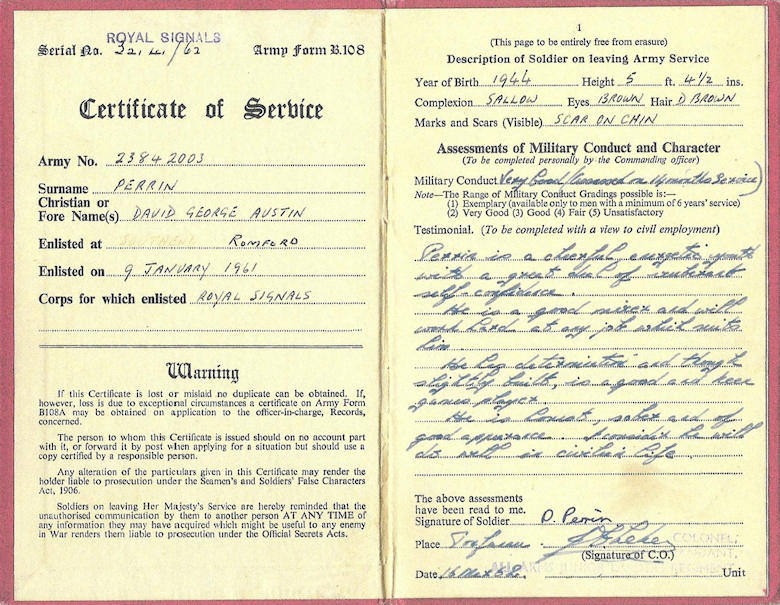 ROYAL SIGNALS
Serial No. 32. 4. /62 Army Form B.108
Certificate of Service
Army No. 23842003
Surname PERRIN
Christian or
Fore Name(s) DAVID GEORGE AUSTIN
Enlisted at SOUTHEND ROMFORD
Enlisted on 9 JANUARY 1961
Corps for which enlisted ROYAL SIGNALS
Warning
If this Certificate is lost or mislaid no duplicate can be obtained. If,
however, loss is due to exceptional circumstances a certificate on Army Form
B108A may be obtained on application to the officer-in-charge, Records,
concerned.
The person to whom this Certificate is issued should on no account part
with it, or forward it by post when applying for a situation but should use a
copy certified by a responsible person.
Any alteration of the particulars given in this Certificate may render the
holder liable to prosecution under the Seamen's and Soldiers' False Characters
Act, 1906.
Soldiers on leaving Her Majesty's Service are hereby reminded that the
unauthorised communication by them to another person AT ANY TIME of
any information they may have acquired which might be useful to any enemy
in War renders them liable to prosecution under the Official Secrets Acts.
1
(This page to be entirely free from erasure)
Description of Soldier on leaving Army Service
Year of Birth 1944 Height 5 ft. 4½ ins.
Complexion SALLOW Eyes BROWN Hair D BROWN
Marks and Scars (Visible) SCAR ON CHIN
Assessments of Military Conduct and Character
(To be completed personally by the Commanding officer)
Military Conduct Very Good (Assessed on 14 months Service)
Note—The Range of Military Conduct Gradings possible is:—
(1) Exemplary (available only to men with a minimum of 6 years' service)
(2) Very Good (3) Good (4) Fair (5) Unsatisfactory
Testimonial. (To be completed with a view to civil employment)
Perrin is a cheerful energetic youth
with a great deal of exuberant
self-confidence.
He is a good mixer and will
work hard at any job which suits
him.
He has determination and though
slightly built, is a good and keen
games player
He is honest, sober and of
good appearance. I consider he will
do well in civilian life.
The above assessments
have been read to me.
Signature of Soldier D. Perrin
Place
(Signature of C.O.)
COLONEL
Date 16 Unit